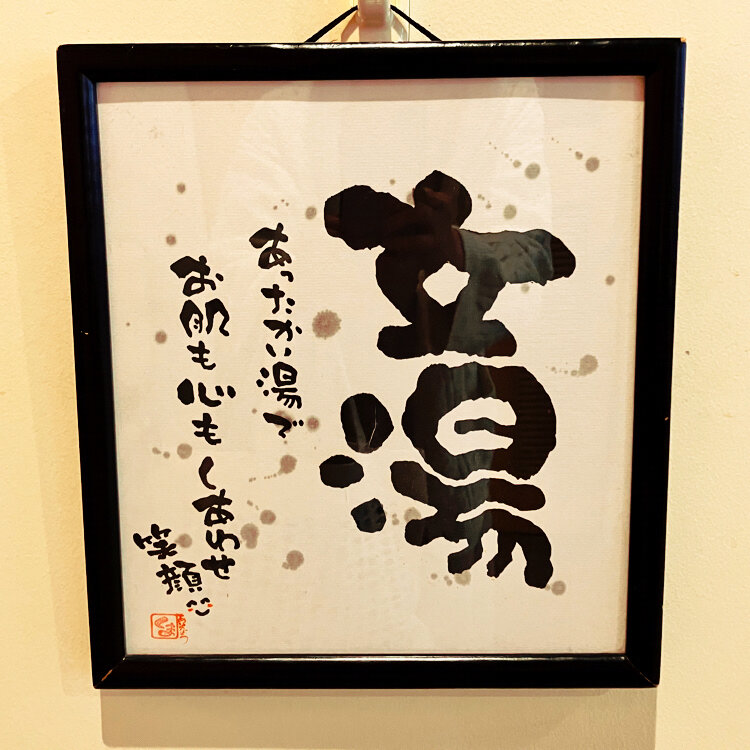 立湯
あったかい湯で
お肌も心もしあわせ
笑顔
くま